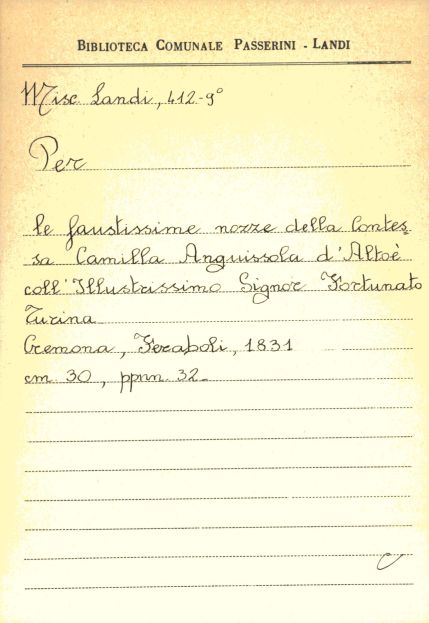 BIBLIOTECA COMUNALE PASSERINI - LANDI
Misc. Landi, 412-9°
Per
le faustissime nozze della Contes=
sa Camilla Anguissola d'Altoè
coll'Illustrissimo Signor Fortunato
Turina
Cremona, Feraboli, 1831
cm. 30, ppnn. 32.
C